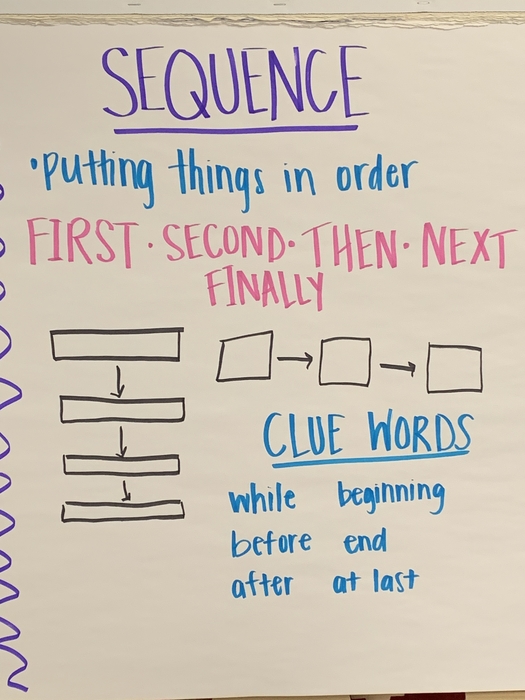 SEQUENCE
•putting things in order
FIRST · SECOND · THEN · NEXT
FINALLY
CLUE WORDS
while beginning
before end
after at last